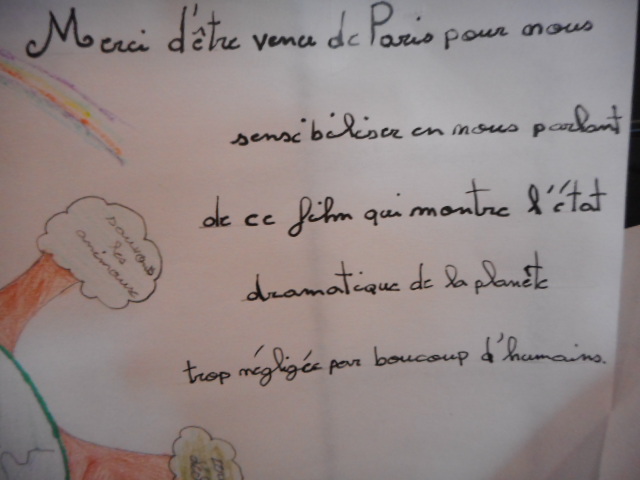 Merci d'être venu de Paris pour nous
sensibiliser en nous parlant
de ce film qui montre l'état
dramatique de la planète
trop négligée par boucoup d'humains.
sauvons
les
animaux